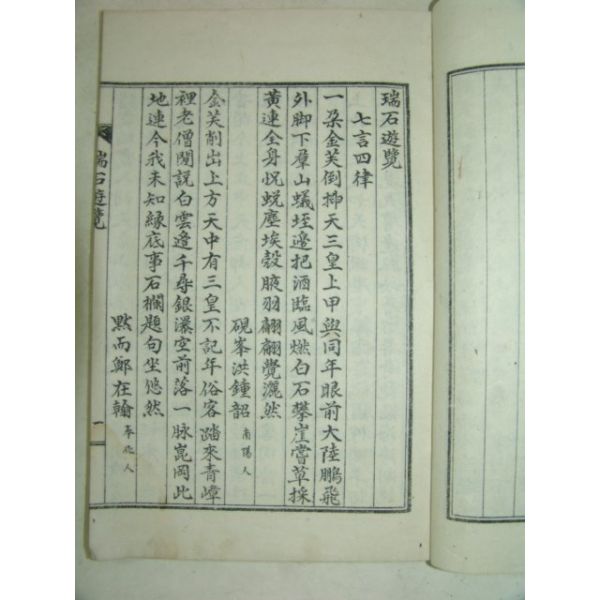 瑞石遊覽
七言四律
一朶金芙倒揷天三皇上甲與同年眼前大陸鵬飛
外脚下羣山蟻垤邊把酒臨風燃白石攀崖嘗草採
黃連全身怳蛻塵埃殼腋羽翩翩覺灑然
硯峯洪鍾韶 南陽人
金芙削出上方天中有三皇不記年俗客踏來靑嶂
裡老僧閒說白雲邊千尋銀瀑空前落一脉崑岡此
地連今我未知緣底事石欄題句坐悠然
默而鄭在翰 奉化人
瑞石遊覽 一